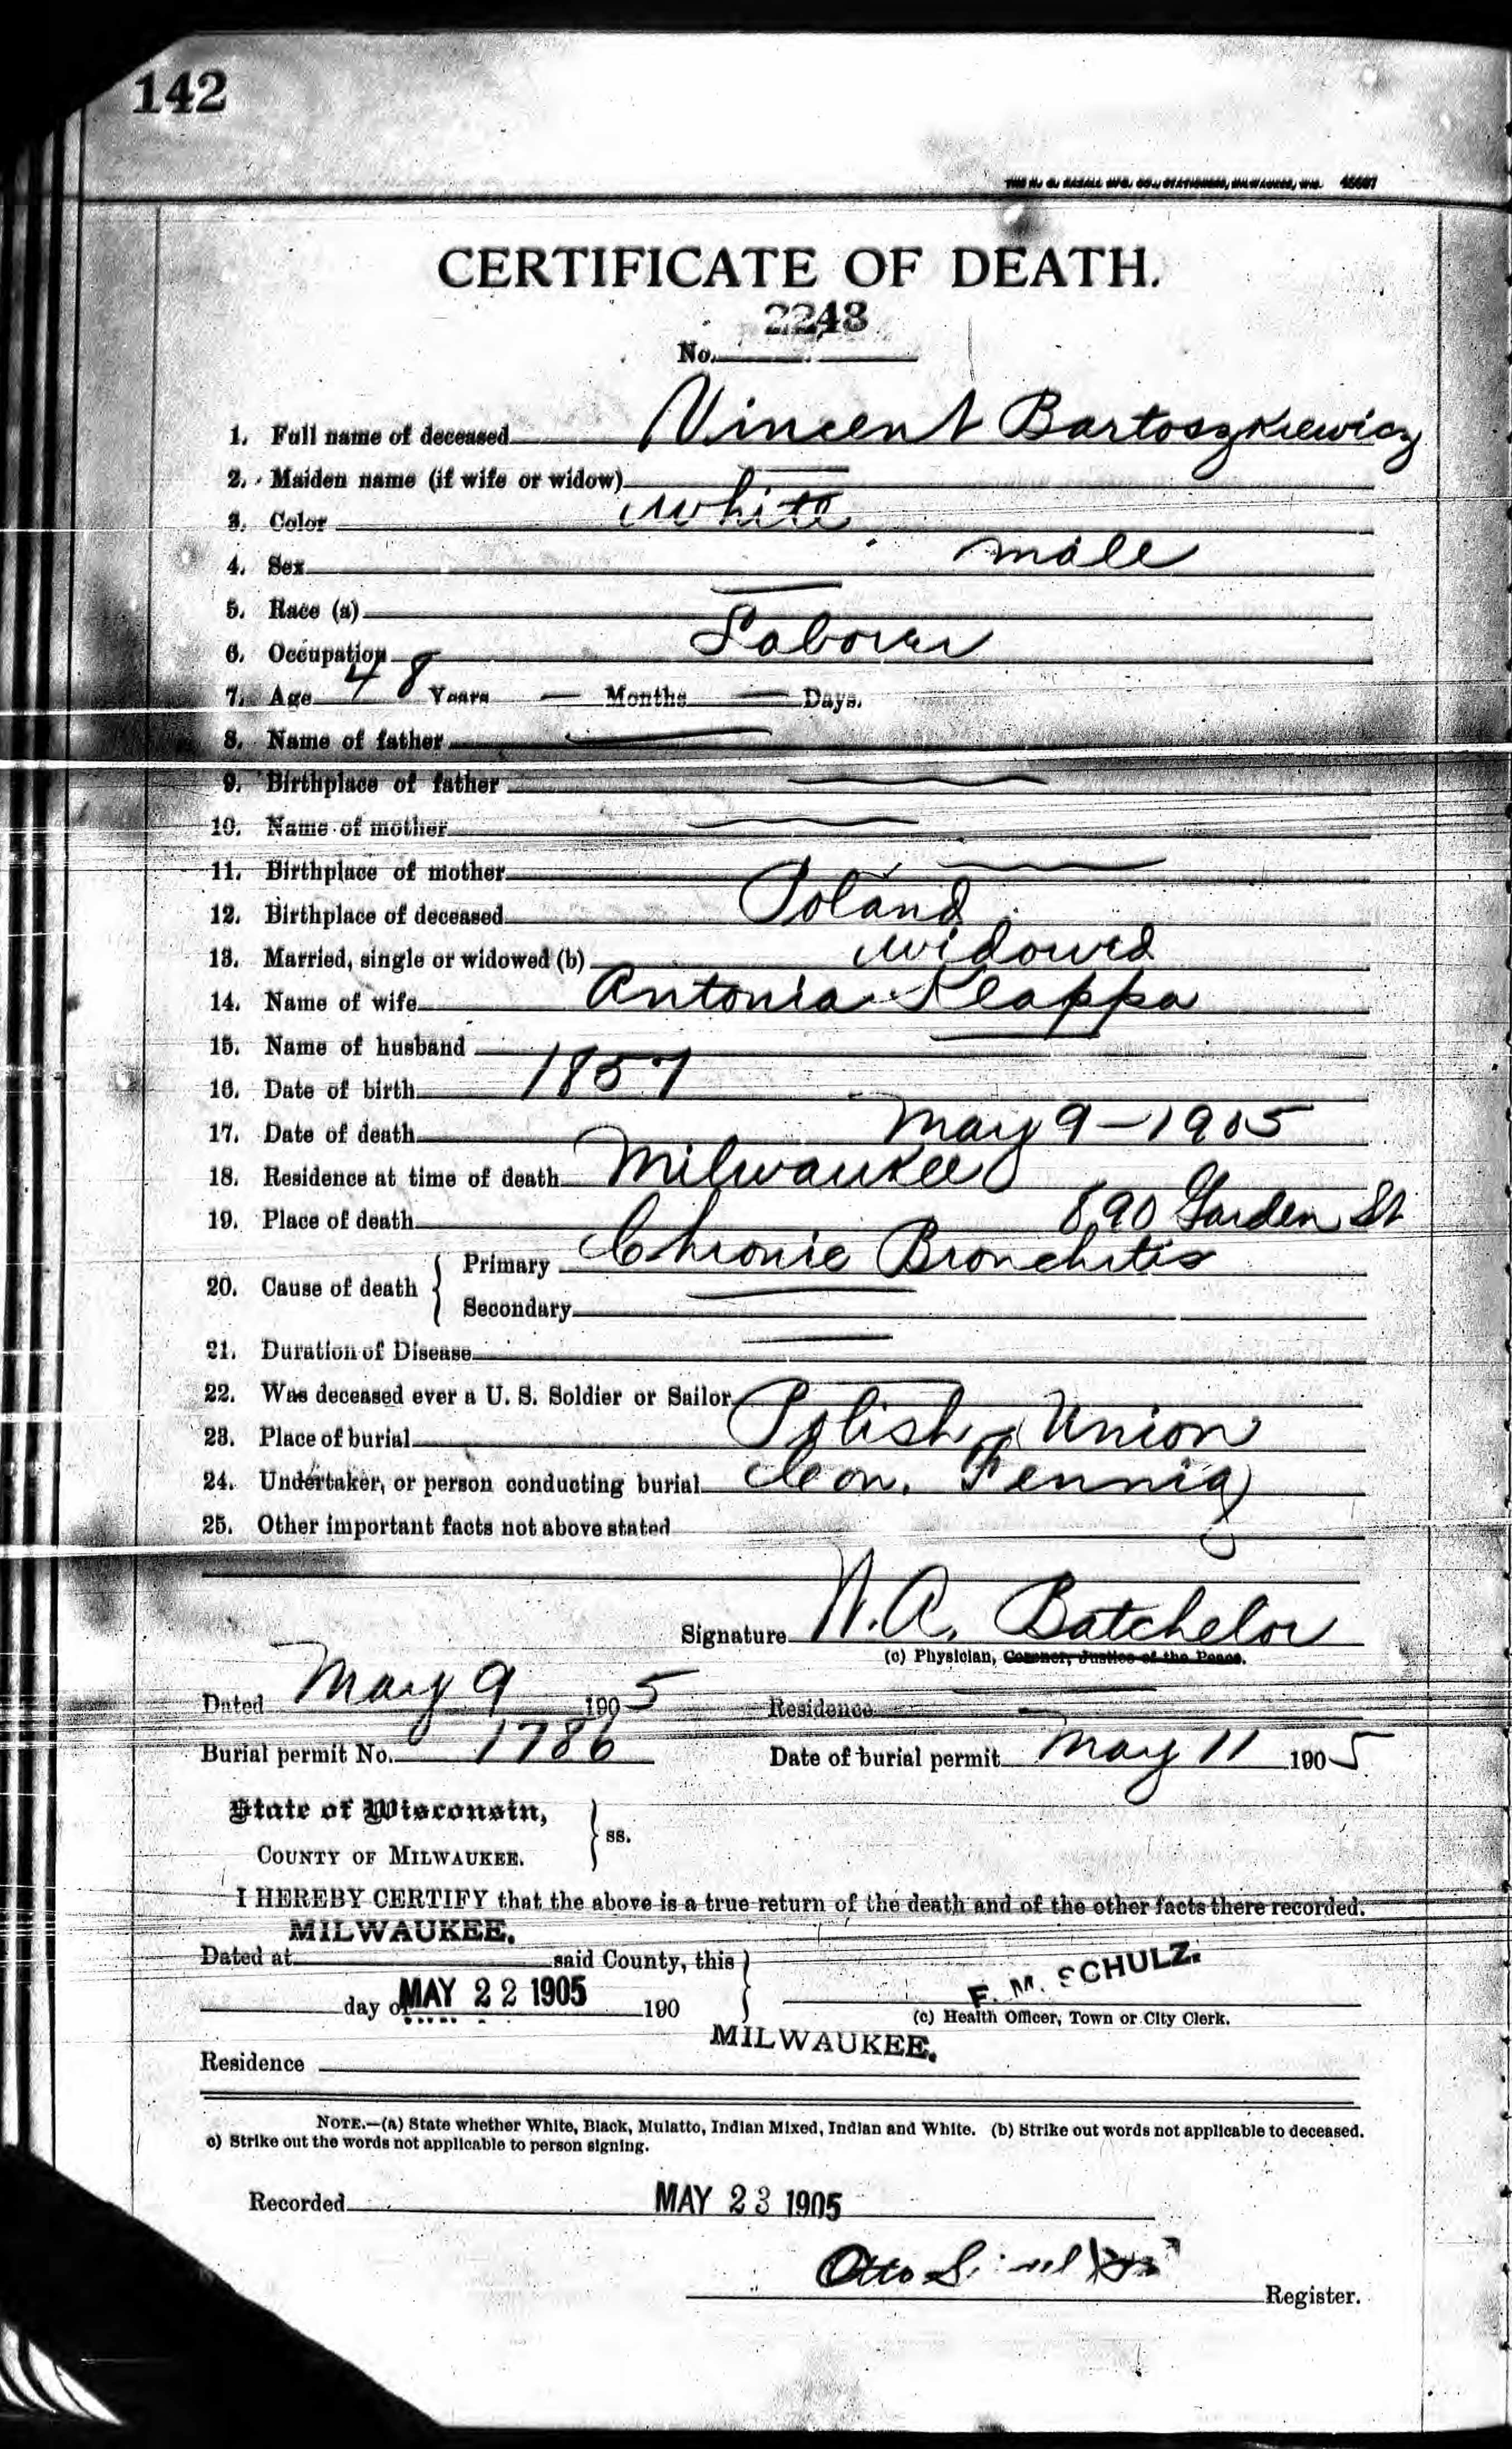 142
THE H. G. RAZALL MFG. CO., STATIONERS, MILWAUKEE, WIS.
CERTIFICATE OF DEATH.
2243
No.
1. Full name of deceased Vincent Bartoszkiewicz
2. Maiden name (if wife or widow) —
3. Color white
4. Sex male
5. Race (a) —
6. Occupation Laborer
7. Age 48 Years — Months — Days.
8. Name of father —
9. Birthplace of father —
10. Name of mother —
11. Birthplace of mother —
12. Birthplace of deceased Poland
13. Married, single or widowed (b) widowed
14. Name of wife Antonia Klappa
15. Name of husband —
16. Date of birth 1857
17. Date of death May 9 – 1905
18. Residence at time of death Milwaukee
19. Place of death 890 Garden St
20. Cause of death { Primary Chronic Bronchitis
Secondary —
21. Duration of Disease —
22. Was deceased ever a U. S. Soldier or Sailor —
23. Place of burial Polish Union
24. Undertaker, or person conducting burial Leon. Fennig
25. Other important facts not above stated
Signature N. A. Batchelor
(c) Physician, Coroner, Justice of the Peace.
Dated May 9 1905 Residence —
Burial permit No. 1786 Date of burial permit May 11 1905
State of Wisconsin,
COUNTY OF MILWAUKEE. } ss.
I HEREBY CERTIFY that the above is a true return of the death and of the other facts there recorded.
MILWAUKEE.
Dated at said County, this }
F. M. SCHULZ.
day of MAY 22 1905 190
(c) Health Officer, Town or City Clerk.
MILWAUKEE.
Residence
NOTE.—(a) State whether White, Black, Mulatto, Indian Mixed, Indian and White. (b) Strike out words not applicable to deceased.
c) Strike out the words not applicable to person signing.
Recorded MAY 23 1905
Otto
Register.